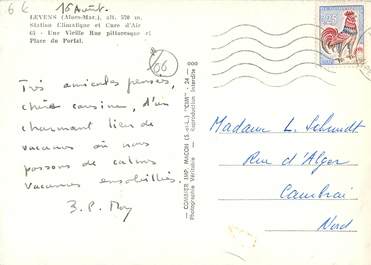 6 €
16 Août.
LEVENS (Alpes-Mar.), alt. 570 m.
Station Climatique et Cure d'Air
65 - Une Vieille Rue pittoresque et
Place du Portal.
06
Très amicales pensées,
chère cousine, d'un
charmant lieu de
vacances où nous
passons de calmes
vacances ensoleillées.
B. P. May
000
COMBIER IMP. MACON (S.-et-L.) "CIM"
Photographie Véritable - Reproduction Interdite
0,25
Madame L. Schmidt
Rue d'Alger
Cambrai
Nord